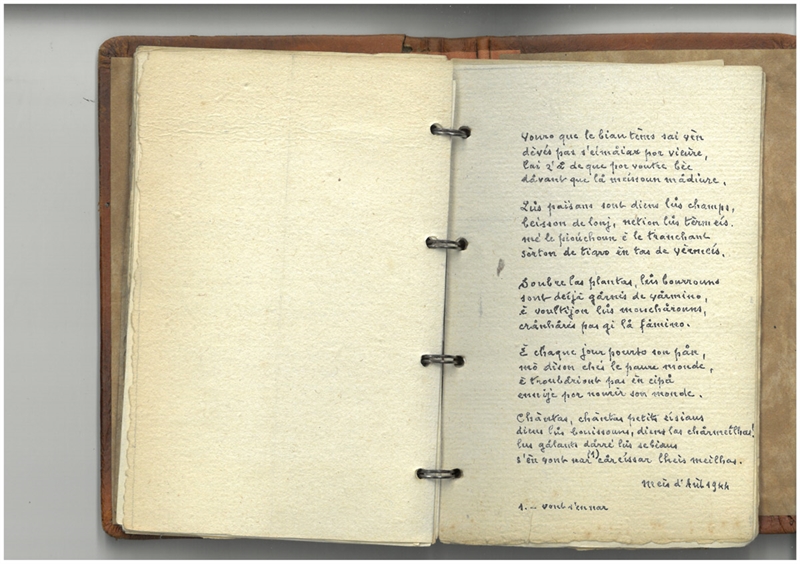 Youro que le biau tèms sai vèn
dèvès pas s'eimâiar por vieure,
lai z'a de que por voutre bèc
davant que lâ meissoun mâdiure.
Lûs païsans sont diens lûs champs,
beisson de lonj, netion lûs tèrmeis.
mé le piouchoun è le tranchant
sòrton de tiaro en tas de vèrmeis.
Soubre las plantas, lûs bourrouns
sont deijâ gârnis de varmino,
è voultijon lûs mouscharouns,
crânharès pas gi lâ fâmino.
È chaque jour pourto son pân,
mô dison chès le paure monde,
è troubariont pas èn cipâ
ennije por nourir son monde.
Chântas, chântas petits eisiaus
diens lûs bouissouns, diens las chârmeilhas!
lus gâlants darré lûs sebiaus
s'èn vont nar(1) carcissar lheis meilhas.
Meis d'Aûl 1944
1. — vont s'en nar